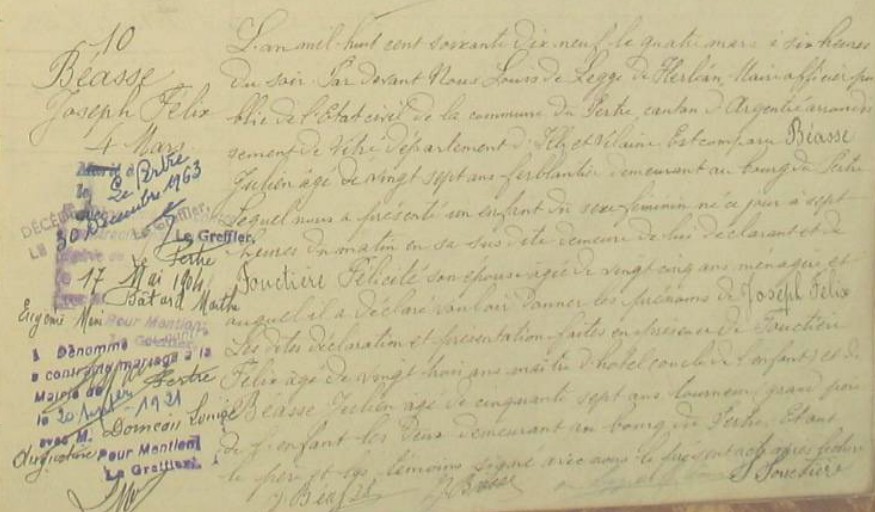 10
Béasse
Joseph Félix
4 Mars
Marié à
Le Pertre
le
30 Décembre 1963
DÉCÉDÉ
Le Greffier.
Le Greffier.
Pertre
le 17 Mai 1904
Bâtard Marthe
Eugénie Mari
Pour Mention:
Le Greffier,
L Dénommé
a contracté mariage à la
Mairie de Pertre
le 20 1921
avec M. Dorneau Louise
Augustine Pour Mention
Le Greffier.
L'an mil huit cent soixante dix neuf le quatre mars à six heures
du soir Par devant Nous Louis de Legge de Kerléan, Maire officier pu
blic de l'Etat civil de la commune du Pertre, canton d'Argentré arrondis
sement de Vitré département d'Ille et Vilaine. Est comparu Béasse
Julien âgé de vingt sept ans ferblantier demeurant au bourg du Pertre
lequel nous a présenté un enfant du sexe féminin né ce jour à sept
heures du matin en sa sus dite demeure de lui déclarant et de
Fouctière Félicité son épouse âgée de vingt cinq ans ménagère et
auquel il a déclaré vouloir donner les prénoms de Joseph Félix
Les dites déclaration et présentation faites en présence de Fouctière
Félix âgé de vingt trois ans maître d'hotel oncle de l'enfant et de
Béasse Julien âgé de cinquante sept ans tourneur grand père
de l'enfant les deux demeurant au bourg du Pertre. Et ont
le père et les témoins signé avec nous le présent acte après lecture
J Béasse J Béasse F Fouctière